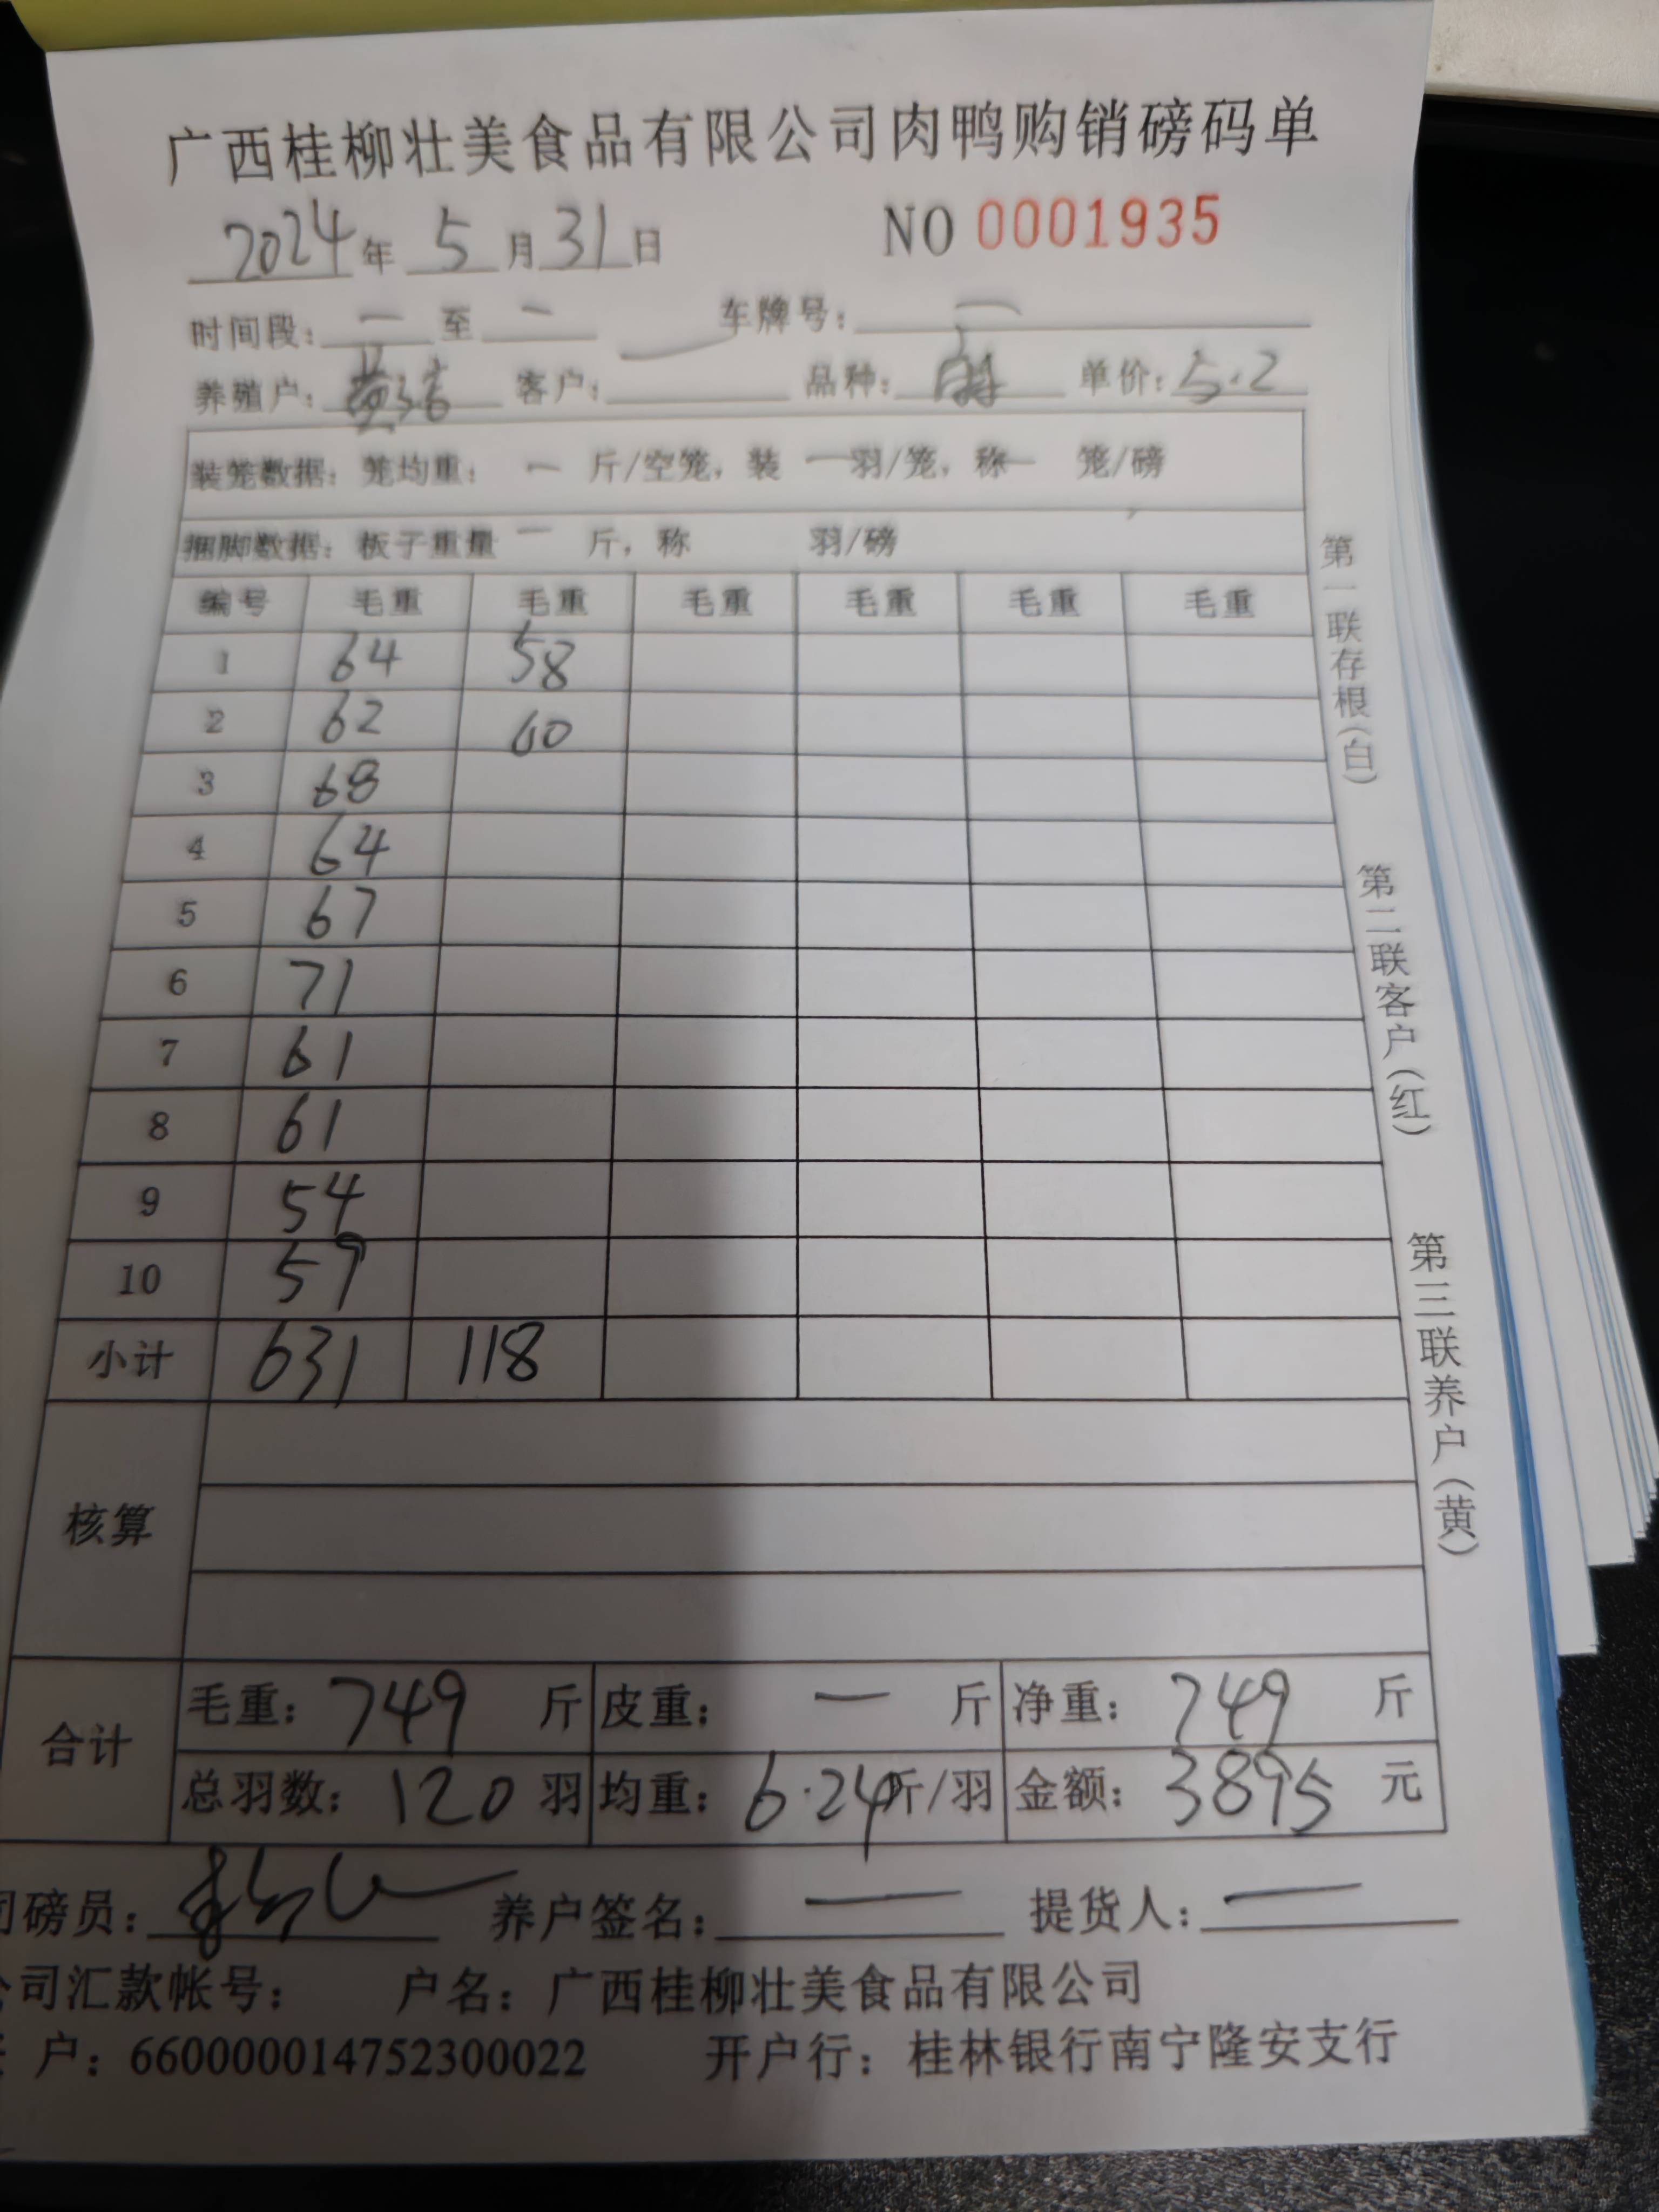 广西桂柳壮美食品有限公司肉鸭购销磅码单
2024年 5月31日 NO 0001935
时间段: — 至 — 车牌号: —
养殖户: 客户: — 品种: 单价: 5.2
装笼数据: 笼均重: — 斤/空笼, 装 — 羽/笼, 称 — 笼/磅
捆脚数据: 板子重量 — 斤, 称 羽/磅
编号 毛重 毛重 毛重 毛重 毛重 毛重
1 64 58
2 62 60
3 68
4 64
5 67
6 71
7 61
8 61
9 54
10 59
小计 631 118
核算
合计
毛重: 749 斤 皮重: — 斤 净重: 749 斤
总羽数: 120 羽 均重: 6.24斤/羽 金额: 3895 元
司磅员: 养户签名: — 提货人: —
公司汇款帐号: 户名: 广西桂柳壮美食品有限公司
户: 660000014752300022 开户行: 桂林银行南宁隆安支行
第一联存根(白)
第二联客户(红)
第三联养户(黄)